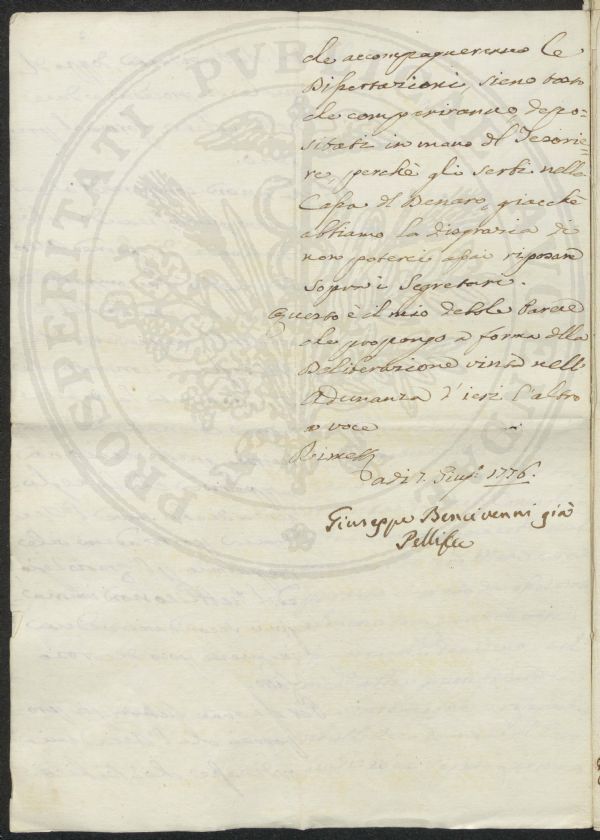 che accompagneranno le
Dissertazioni, sieno tosto
che compariranno depo=
sitati in mano del Tesorie=
re perchè gli serbi nella
Cassa del Denaro, giacchè
abbiamo la disgrazia di
non poterci assai riposare
sopra i Segretari.
Questo è il mio debole Parere
che propongo a forma della
Deliberazione vinta nell'
Adunanza d'ieri l'altro
a voce
adi 7. Giug.° 1776.
Giuseppe Bencivenni già
Pelli
PROSPERITATI PVBLICAE AVGENDAE